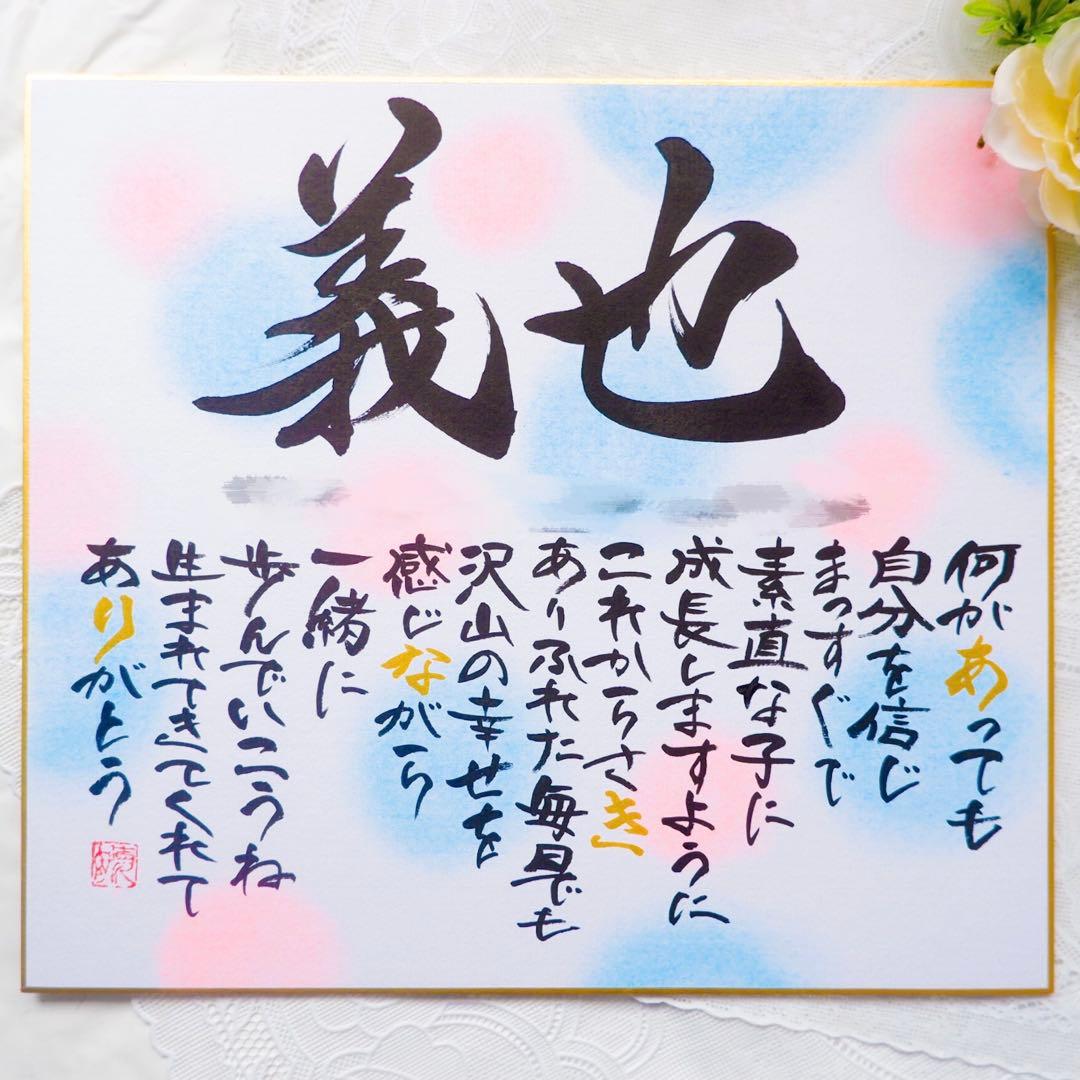 義也
何があっても
自分を信じ
まっすぐで
素直な子に
成長しますように
これからさき
ありふれた毎日でも
沢山の幸せを
感じながら
一緒に
歩んでいこうね
生まれてきてくれて
ありがとう